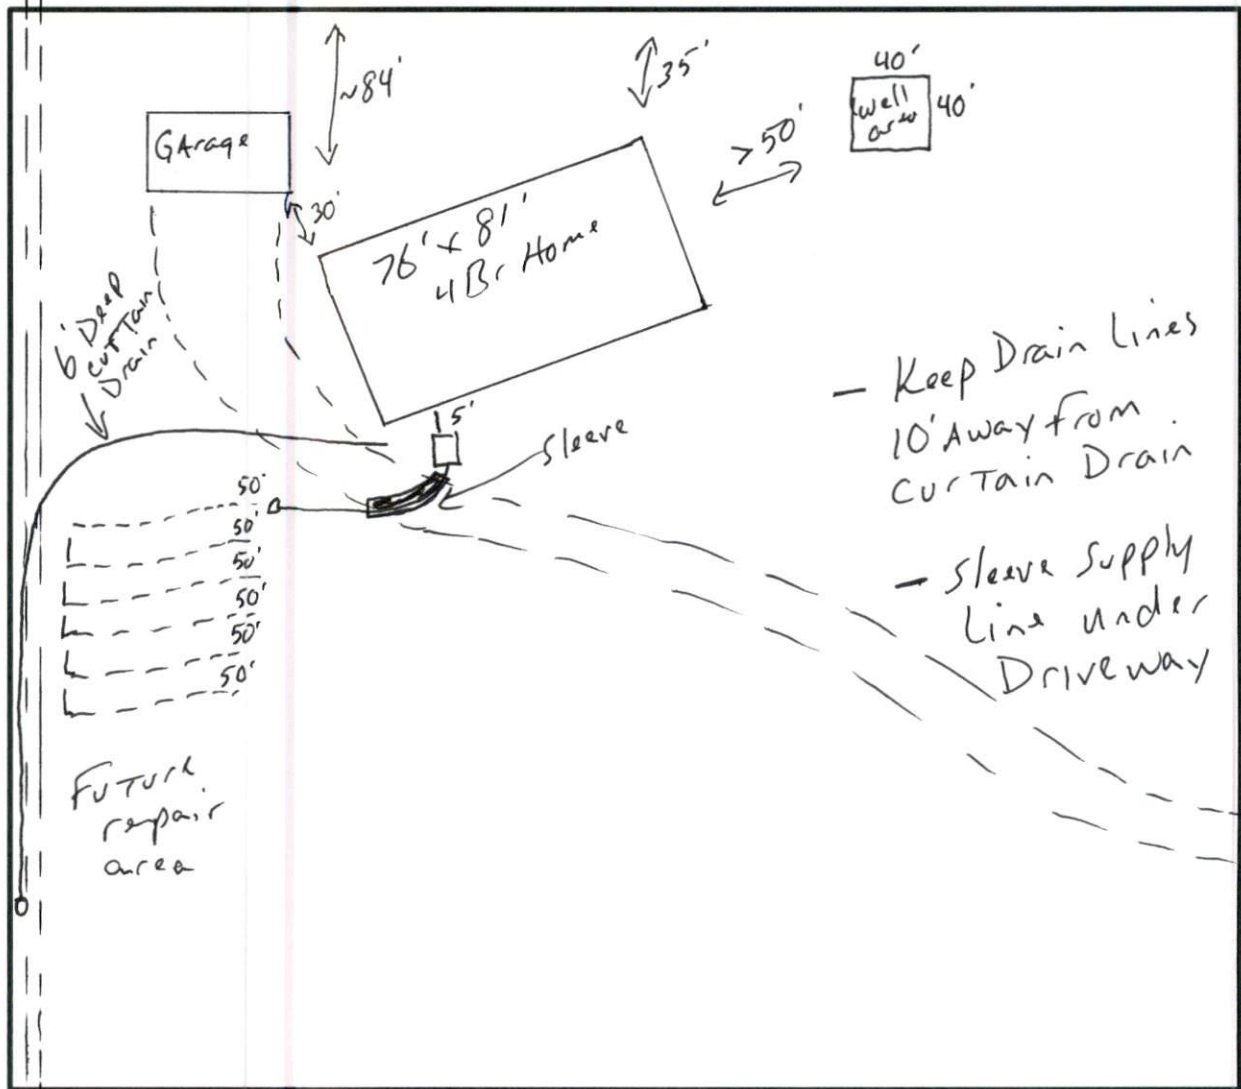 ~84'
35'
40'
well
area
40'
GArage
>50'
30'
76' x 81'
4 Br Home
6' Deep
curTain
Drain
5'
Sleeve
50'
50'
50'
50'
50'
50'
- Keep Drain Lines
10' Away from
curTain Drain
- Sleeve Supply
Line under
Driveway
FuTure
repair
area